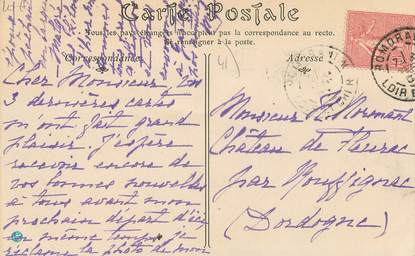 Carte Postale
Tous les pays étrangers n'acceptent pas la correspondance au recto.
Se renseigner à la poste.
Correspondance
Adresse
Cher Monsieur Vos
3 dernières cartes
m'ont fait grand
plaisir. J'espère
recevoir encore de
vos bonnes nouvelles
à tous avant mon
prochain départ d'ici
en même temps je
réclame la photo de mon
Monsieur
Château de Fleurac
par Rouffignac
(Dordogne)
ROMORAN
LOIR E